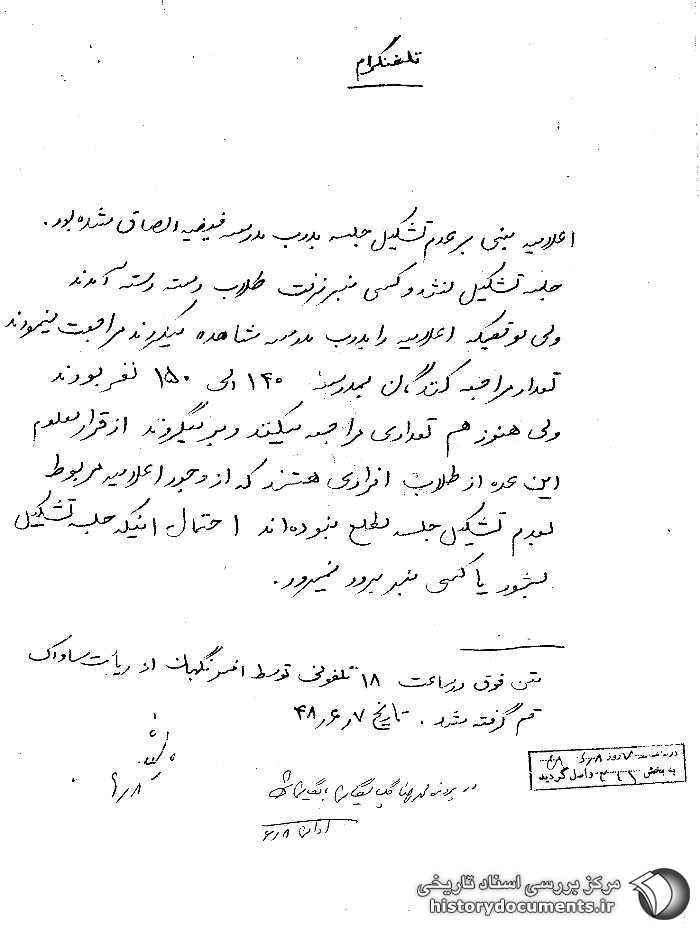 تلفنگرام
اعلامیه مبنی بر عدم تشکیل جلسه بدرب مدرسه فیضیه الصاق شده بود.
جلسه تشکیل نشد و کسی منبر نرفت طلاب دسته دسته آمدند
ولی موقعیکه اعلامیه را بدرب مدرسه مشاهده میکردند مراجعت مینمودند
تعداد مراجعه کنندگان بمدرسه ۱۴۰ الی ۱۵۰ نفر بودند
ولی هنوز هم تعدادی مراجعه میکنند و بر میگردند از قرار معلوم
این عده از طلاب افرادی هستند که از وجود اعلامیه مربوط
بعدم تشکیل جلسه مطلع نبوده‌اند احتمال اینکه جلسه تشکیل
بشود یا کسی منبر برود نمیرود.
متن فوق در ساعت ۱۸ تلفونی توسط افسر نگهبان از ریاست ساواک
قم گرفته شد. تاریخ ۴۸٫۶٫۷
۶٫۸
در پرونده محمدرضا گلپایگانی بایگانی شود
۶٫۸
به بخش واصل گردید
مرکز بررسی اسناد تاریخی
historydocuments.ir